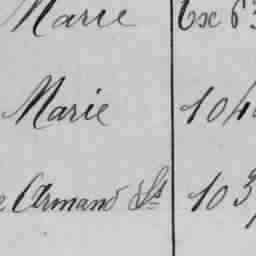 Marie 6x 63
Marie 104
e Armand Ls 103